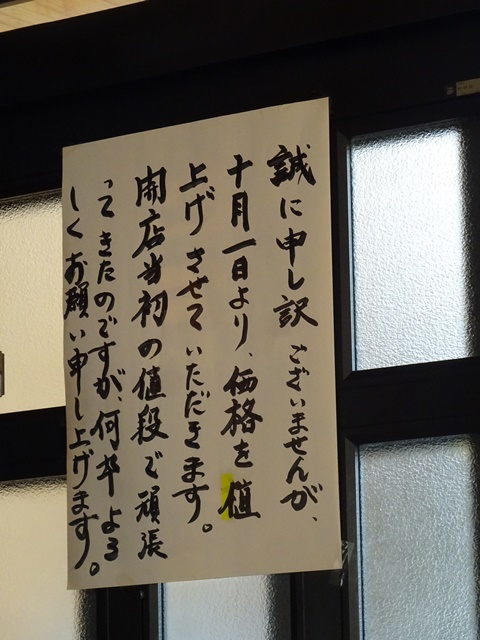 誠に申し訳ございませんが、
十月一日より、価格を値
上げさせていただきます。
開店当初の値段で頑張
ってきたのですが、何卒よろ
しくお願い申し上げます。